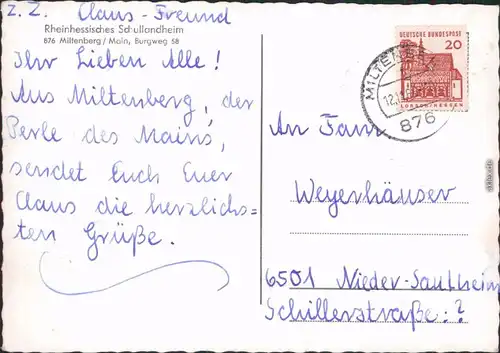 z. Z. Claus-Freund
Rheinhessisches Schullandheim
876 Miltenberg / Main, Burgweg 58
Ihr Lieben Alle!
Aus Miltenberg, der
Perle des Mains,
sendet Euch Euer
Claus die herzlichs=
ten Grüße.
DEUTSCHE BUNDESPOST
20
LORSCH/HESSEN
MILTENBERG
876
An Fam
Weyerhäuser
6501 Nieder-Saulheim
Schillerstraße:?